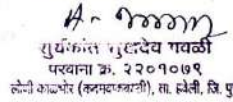 सुर्यकांत सुखदेव गवळी
परवाना क्र. २२०१०७९
लोणी काळभोर (कदमवाकवस्ती), ता. हवेली, जि. पु